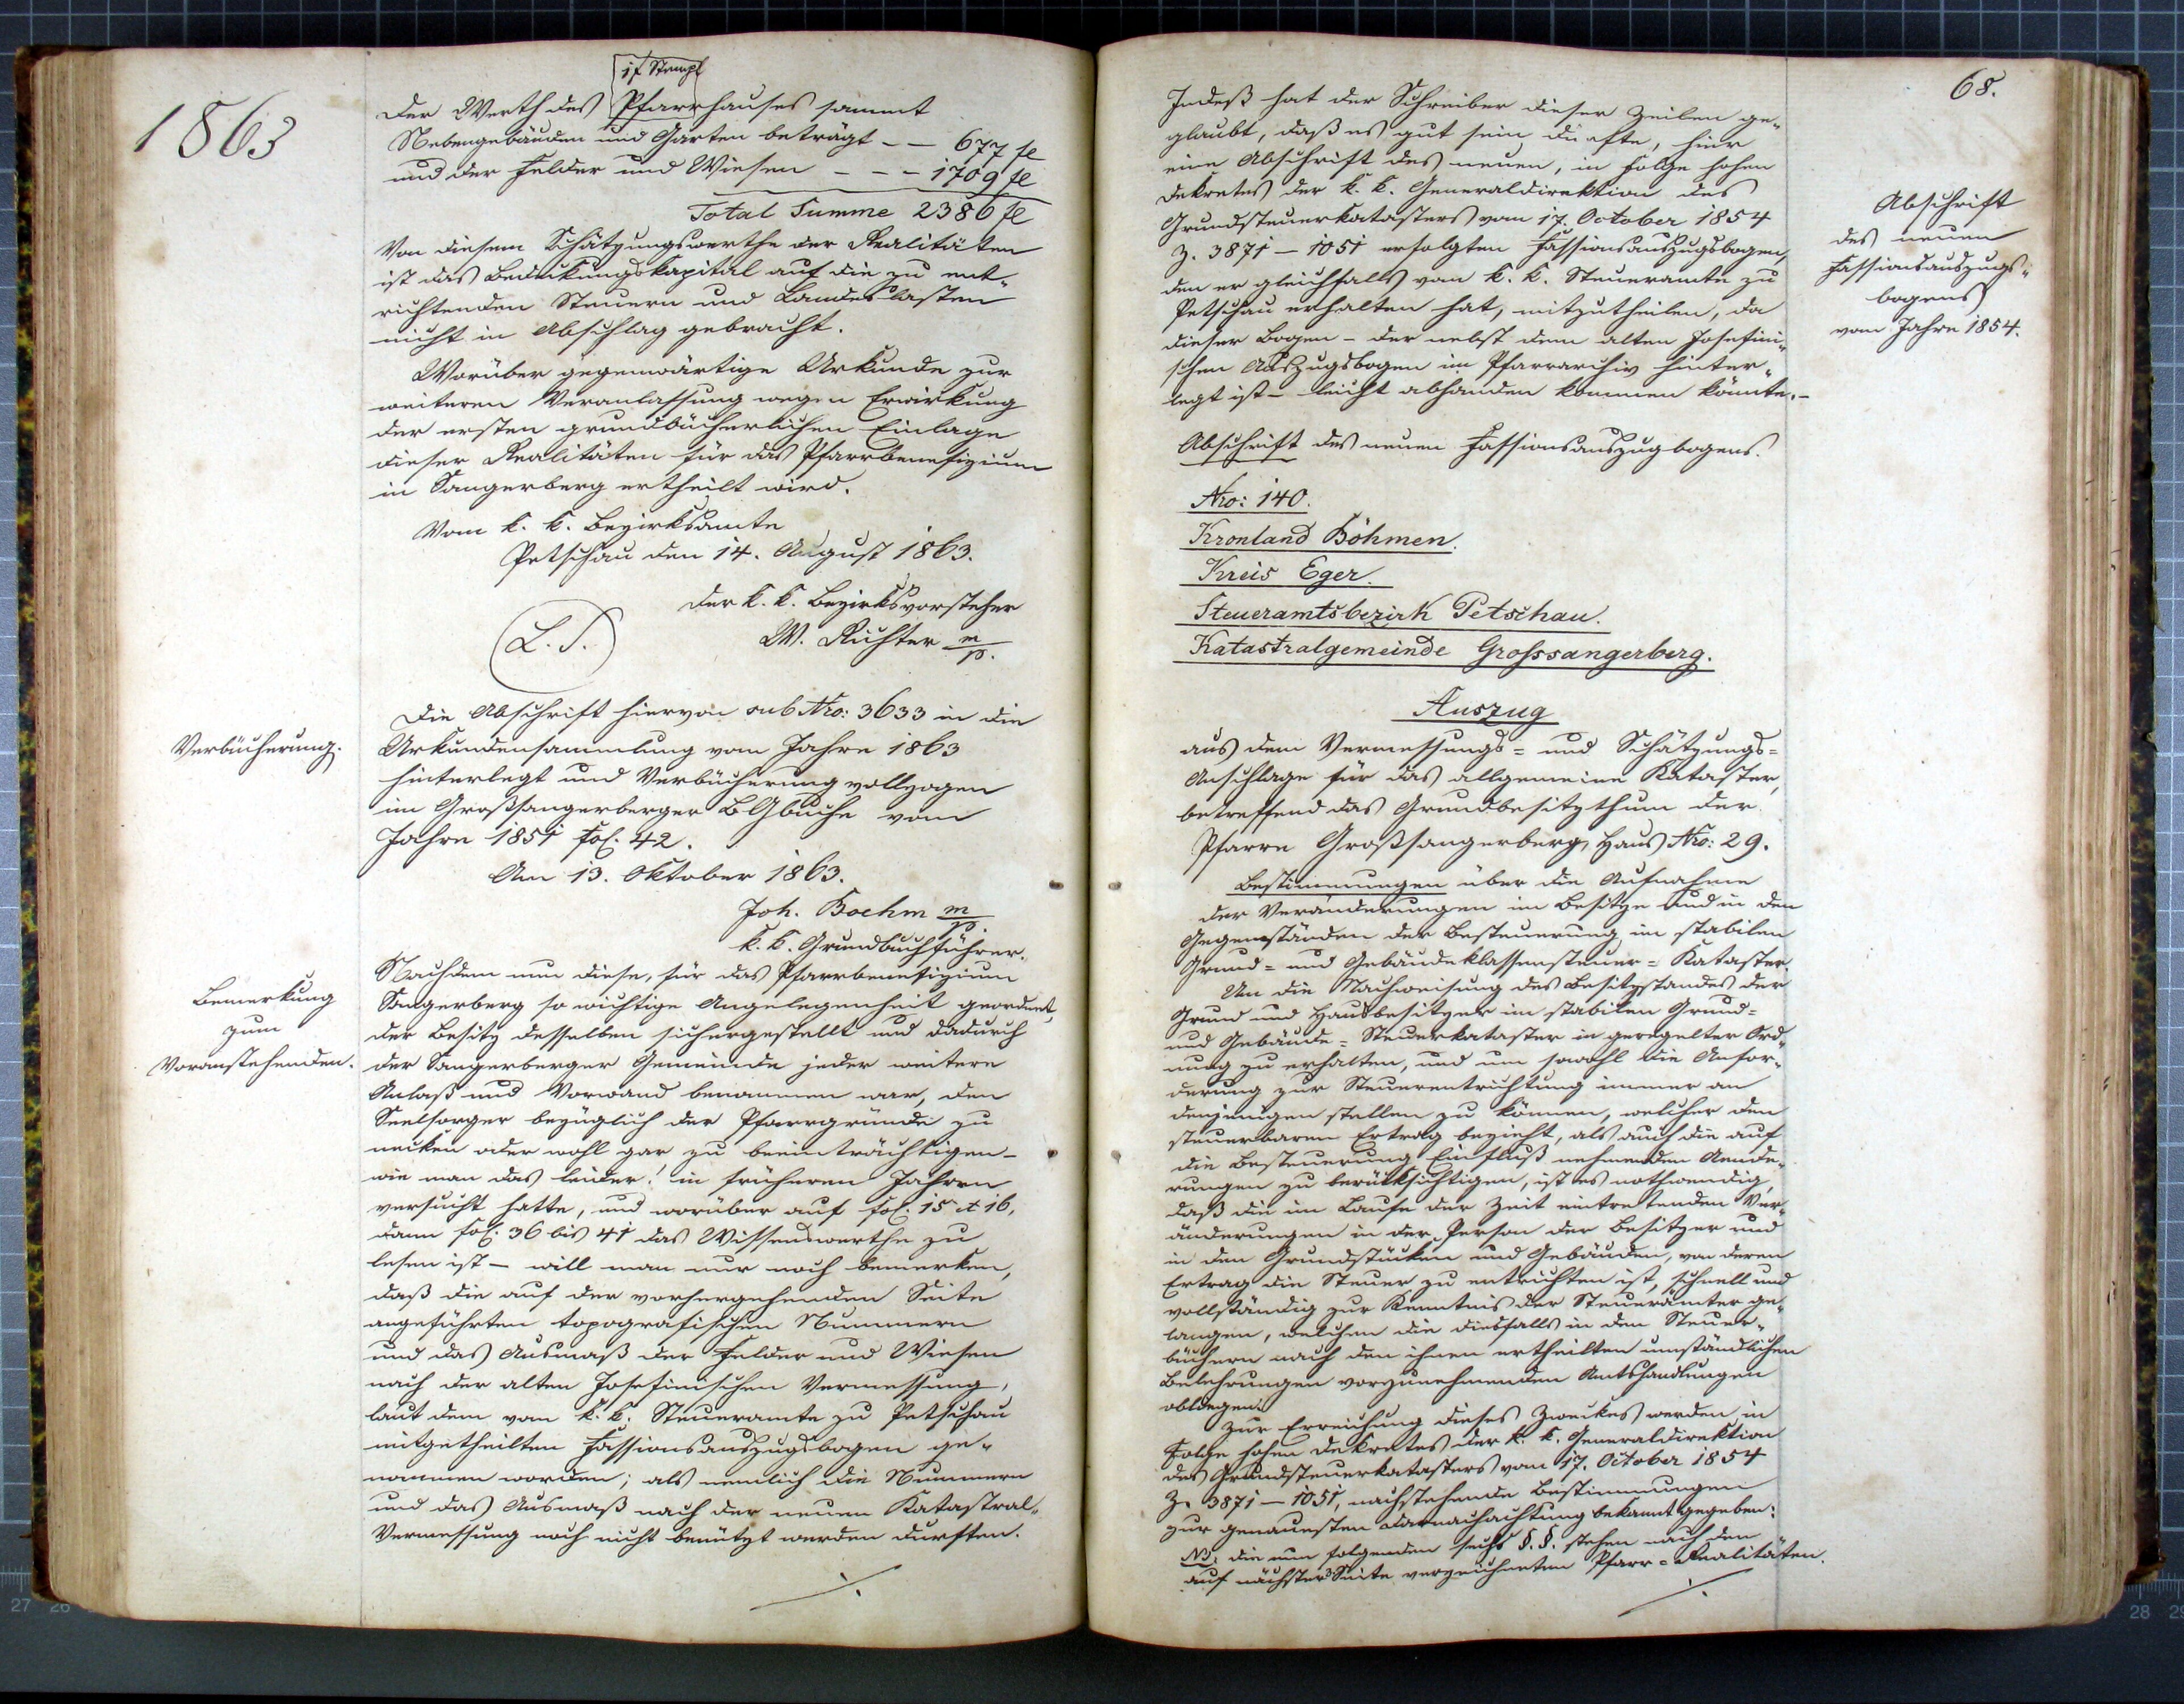 1863
1 f Stempl
Der Werth des Pfarrhauses sammt
Nebengebäuden und Garten beträgt - - 677 fl
und der Felder und Wiesen - - - 1709 fl
Total Summe 2386 fl
Von diesem Schätzungswerthe der Realitäten
ist das Bedeckungskapital auf die zu ent-
richtenden Steuern und Landeslasten
nicht in Abschlag gebracht.
Worüber gegenwärtige Urkunde zur
weiteren Veranlassung wegen Erwirkung
der ersten grundbücherlichen Einlage
dieser Realitäten für das Pfarrbenefizium
in Sangerberg ertheilt wird.
Vom k. k. Bezirksamte
Petschau den 14. August 1863.
Der k. k. Bezirksvorsteher
(L. S.) W. Richter m/p.
Verbücherung.
Die Abschrift hiervon sub Nro: 3633 in die
Urkundensammlung vom Jahre 1863
hinterlegt und Verbücherung vollzogen
im Großsangerberger BGbuche vom
Jahre 1851 fol. 42.
Am 13. Oktober 1863.
Joh. Boehm m/p.
k. k. Grundbuchführer.
Bemerkung
zum
Voranstehenden.
Nachdem nun diese, für das Pfarrbenefizium
Sangerberg so wichtige Angelegenheit geordnet,
der Besitz desselben sichergestellt und dadurch
der Sangerberger Gemeinde jeder weitere
Anlaß und Vorwand benommen war, den
Seelsorger bezüglich der Pfarrgründe zu
necken oder wohl gar zu beeinträchtigen -
wie man das leider! in früheren Jahren
versucht hatte, und worüber auf fol. 15 et 16,
dann fol. 36 bis 41 das Wissenswerthe zu
lesen ist - will man nur noch bemerken,
daß die auf der vorhergehenden Seite
angeführten topografischen Nummern
und das Ausmaß der Felder und Wiesen
nach der alten Josefinischen Vermessung,
laut dem vom k. k. Steueramte zu Petschau
mitgetheilten Fassionsauszugsbogen ge-
nommen worden; als nemlich die Nummern
und das Ausmaß nach der neuen Katastral-
Vermessung noch nicht benützt werden durften.
./.
68.
Indeß hat der Schreiber dieser Zeilen ge-
glaubt, daß es gut sein dürfte, hier
eine Abschrift des neuen, in Folge hohen
Dekretes der k. k. Generaldirektion des
Grundsteuerkatasters vom 17. October 1854
Z. 3871 - 1051 erfolgten Fassionsauszugsbogens,
den er gleichfalls vom k. k. Steueramte zu
Petschau erhalten hat, mitzutheilen, da
dieser Bogen - der nebst dem alten Josefini-
schen Auszugsbogen im Pfarrarchiv hinter-
legt ist - leicht abhanden kommen könnte. -
Abschrift
des neuen
Fassionsauszugs-
bogens
vom Jahre 1854.
Abschrift des neuen Fassionsauszugbogens.
Nro: 140.
Kronland Böhmen.
Kreis Eger.
Steueramtsbezirk Petschau.
Katastralgemeinde Grosssangerberg.
Auszug
aus dem Vermessungs= und Schätzungs=
Anschlage für das allgemeine Kataster,
betreffend das Grundbesitzthum der
Pfarre Großsangerberg, Haus Nro: 29.
Bestimmungen über die Aufnahme
der Veränderungen im Besitze und in den
Gegenständen der Besteuerung im stabilen
Grund= und Gebäudeklassensteuer=Kataster.
Um die Nachweisung des Besitzstandes der
Grund und Hausbesitzer im stabilen Grund=
und Gebäude=Steuerkataster in geregelter Ord-
nung zu erhalten, und um sowohl die Anfor-
derung zur Steuerentrichtung immer an
denjenigen stellen zu können, welcher den
steuerbaren Ertrag bezieht, als auch die auf
die Besteuerung Einfluß nehmenden Aende-
rungen zu berücksichtigen, ist es nothwendig,
daß die im Laufe der Zeit eintretenden Ver-
änderungen in der Person der Besitzer und
in den Grundstücken und Gebäuden, von deren
Ertrag die Steuer zu entrichten ist, schnell und
vollständig zur Kenntnis der Steuerämter ge-
langen, welchen die diesfalls in den Steuer-
büchern nach den ihnen ertheilten umständlichen
Belehrungen vorzunehmenden Amtshandlungen
obliegen.
Zur Erreichung dieses Zweckes werden in
Folge hohen Dekretes der k. k. Generaldirektion
des Grundsteuerkatasters vom 17. October 1854
Z. 3871 - 1051, nachstehende Bestimmungen
zur genauesten Darnachachtung bekannt gegeben:
NB. die nun folgenden sechs §. §. stehen nach den
auf nächster Seite verzeichneten Pfarr=Realitäten.
./.